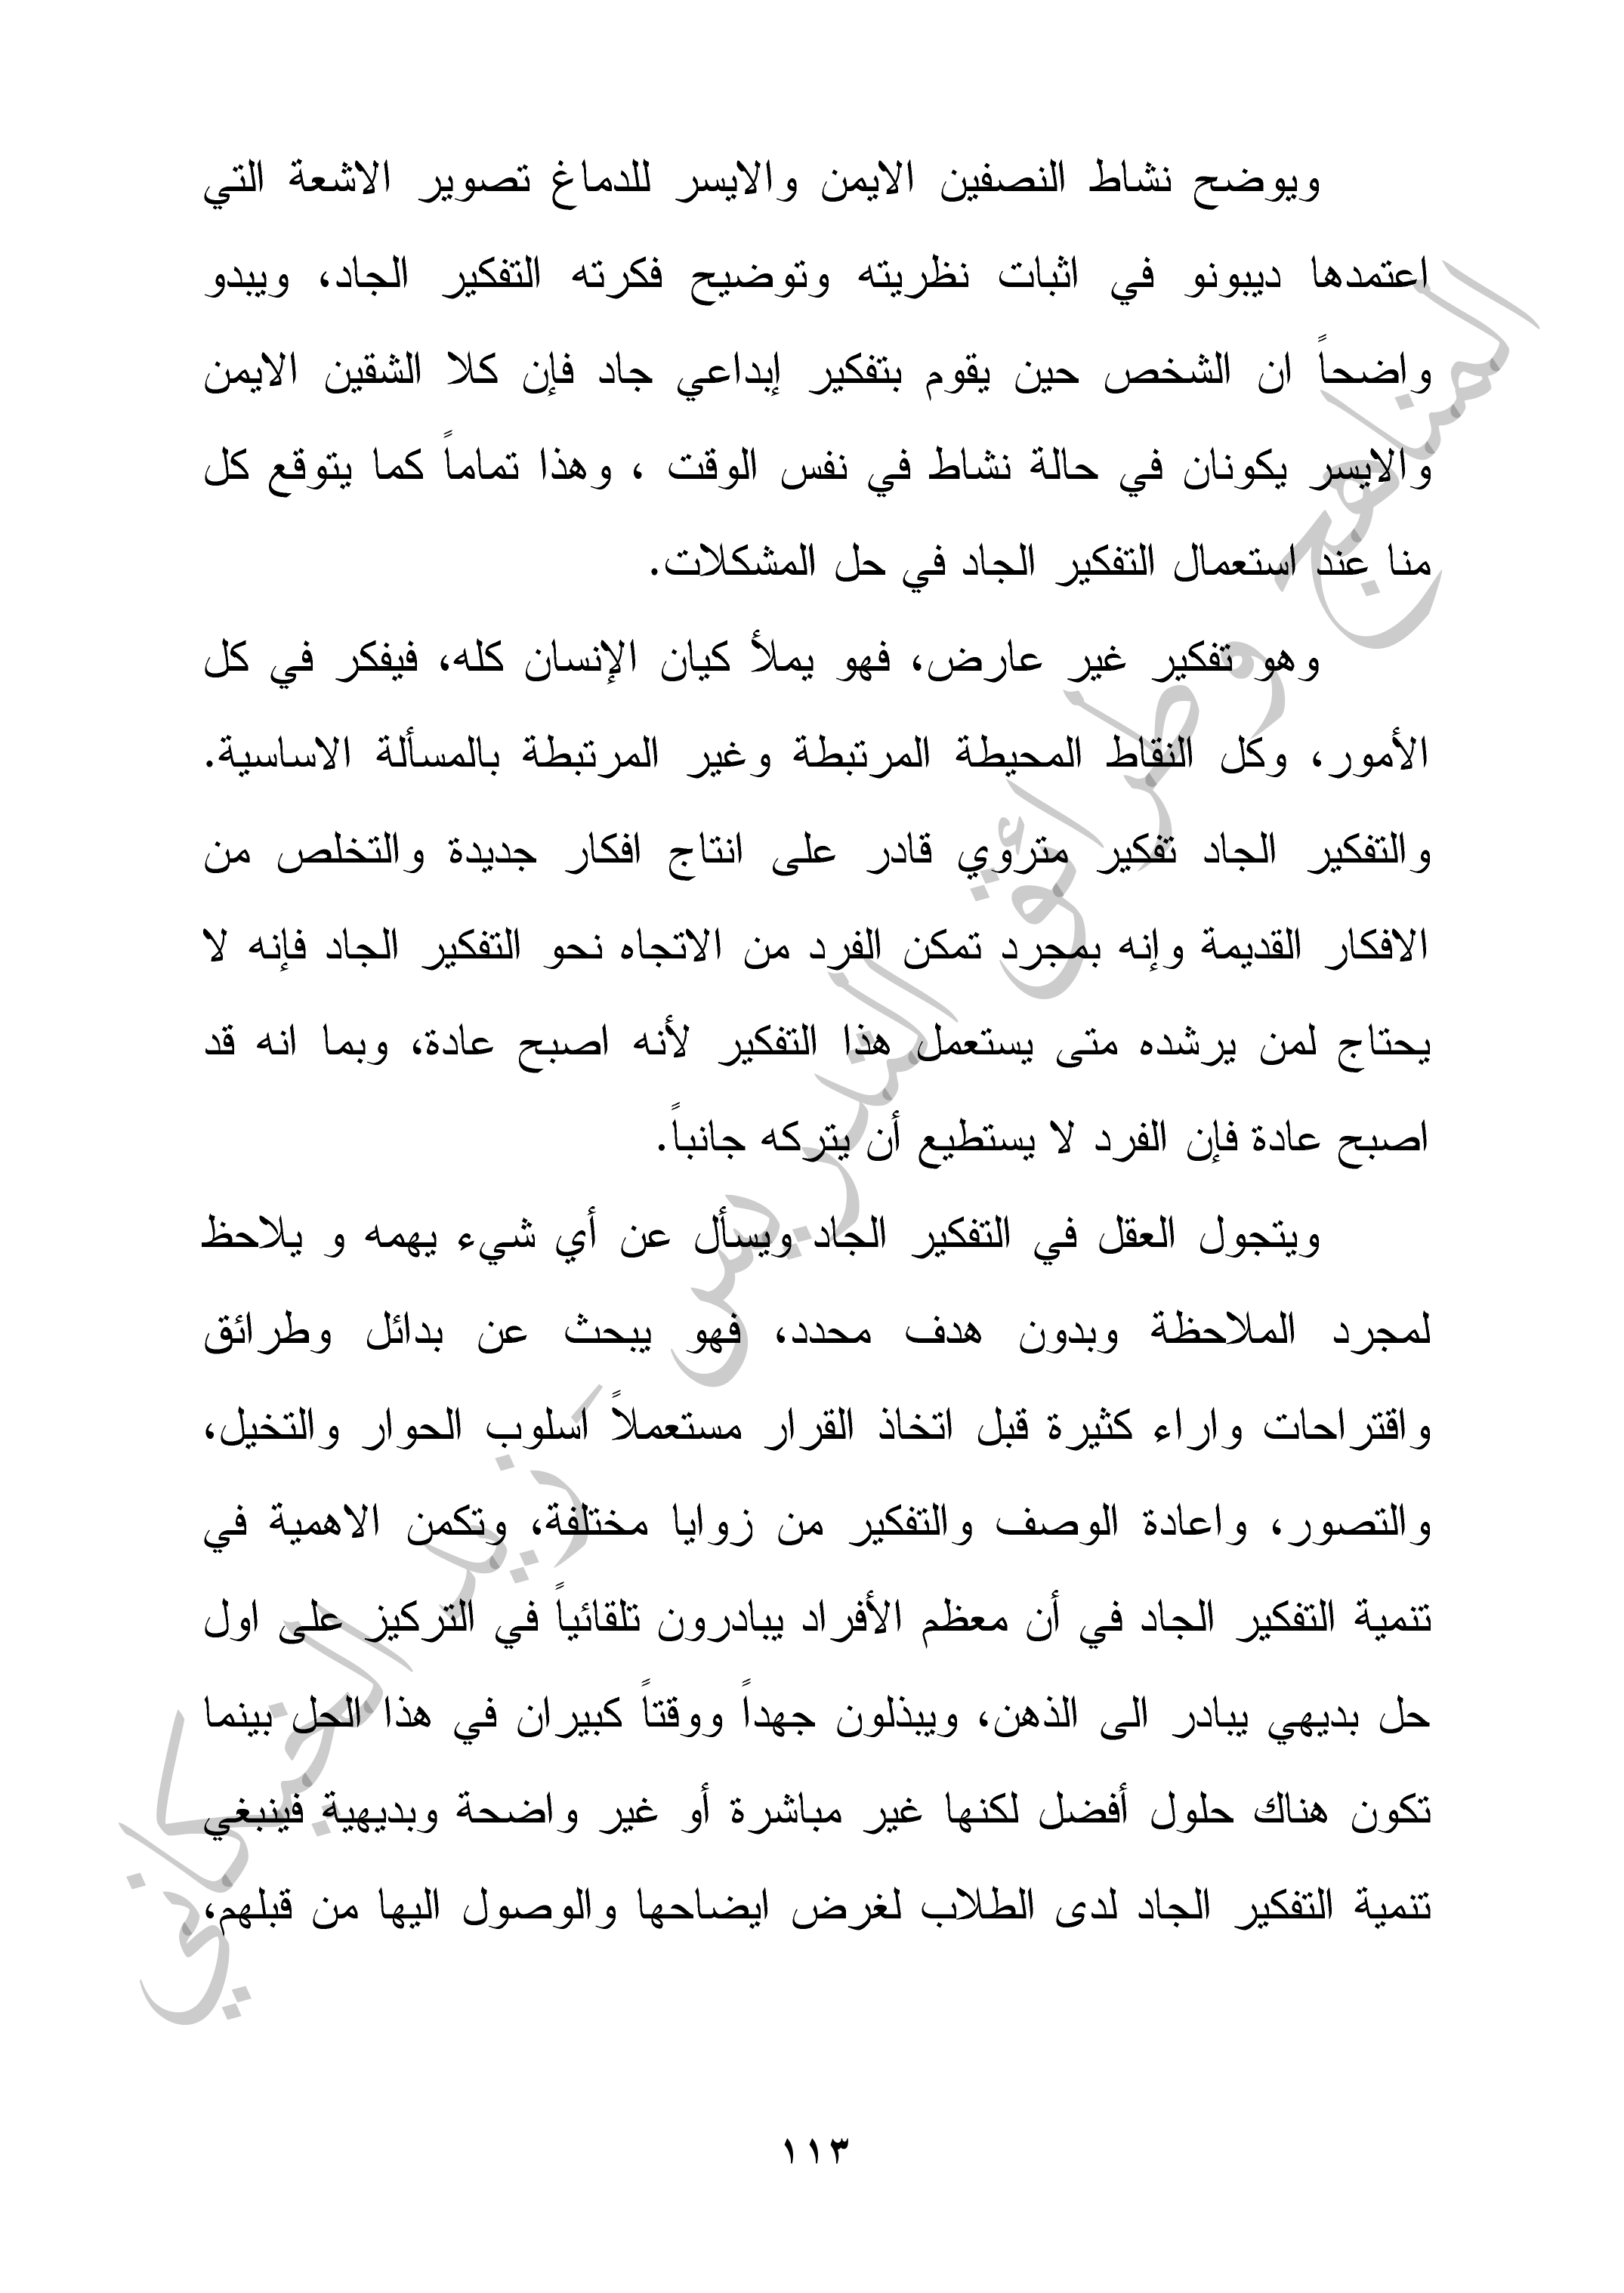 ويوضح نشاط النصفين الايمن والايسر للدماغ تصوير الاشعة التي
اعتمدها ديبونو في اثبات نظريته وتوضيح فكرته التفكير الجاد، ويبدو
واضحاً ان الشخص حين يقوم بتفكير إبداعي جاد فإن كلا الشقين الايمن
والايسر يكونان في حالة نشاط في نفس الوقت ، وهذا تماماً كما يتوقع كل
منا عند استعمال التفكير الجاد في حل المشكلات.
وهو تفكير غير عارض، فهو يملأ كيان الإنسان كله، فيفكر في كل
الأمور، وكل النقاط المحيطة المرتبطة وغير المرتبطة بالمسألة الاساسية.
والتفكير الجاد تفكير متروي قادر على انتاج افكار جديدة والتخلص من
الافكار القديمة وإنه بمجرد تمكن الفرد من الاتجاه نحو التفكير الجاد فإنه لا
يحتاج لمن يرشده متى يستعمل هذا التفكير لأنه اصبح عادة، وبما انه قد
اصبح عادة فإن الفرد لا يستطيع أن يتركه جانباً.
ويتجول العقل في التفكير الجاد ويسأل عن أي شيء يهمه و يلاحظ
لمجرد الملاحظة وبدون هدف محدد، فهو يبحث عن بدائل وطرائق
واقتراحات واراء كثيرة قبل اتخاذ القرار مستعملاً اسلوب الحوار والتخيل،
والتصور، واعادة الوصف والتفكير من زوايا مختلفة، وتكمن الاهمية في
تنمية التفكير الجاد في أن معظم الأفراد يبادرون تلقائياً في التركيز على اول
حل بديهي يبادر الى الذهن، ويبذلون جهداً ووقتاً كبيران في هذا الحل بينما
تكون هناك حلول أفضل لكنها غير مباشرة أو غير واضحة وبديهية فينبغي
تنمية التفكير الجاد لدى الطلاب لغرض ايضاحها والوصول اليها من قبلهم،
المناهج وطرائق التدريس – زيد الخيكاني
١١٣